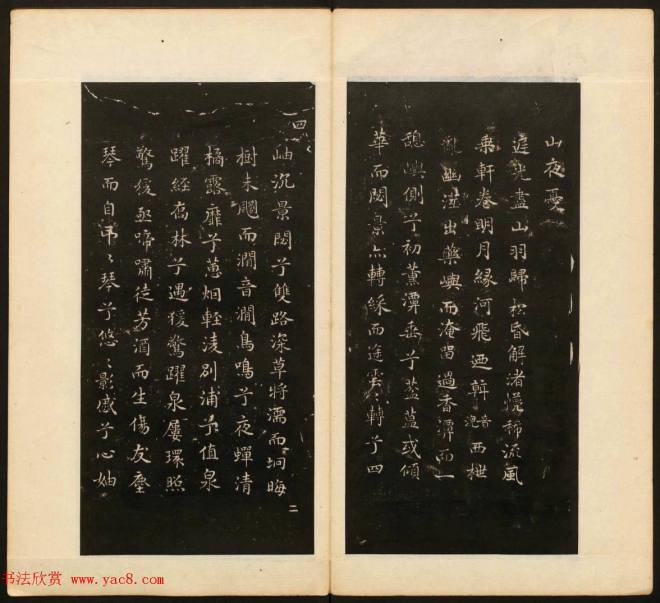 山夜憂
光盡山羽歸松昏解渚稀流風
乘軒卷明月緣河飛迺斡音西枻
亂幽澨出藥嶼而淹留過香潭而一
憩嶼側兮初薰潭垂兮葐蒀或傾
華而閟景亦轉綵而途雲〻轉兮四
四
岫沉景閟兮雙路深草將濡而坰晦
樹未飈而澗音澗鳥鳴兮夜蟬清
橘露靡兮蕙烟輕凌別浦兮值泉
躍經喬林兮遇猨驚躍泉屢環照
驚猨亟啼嘯徒芳酒而生傷友塵
琴而自弔〻琴兮悠〻影感兮心妙
二
书法欣赏 www.yac8.com